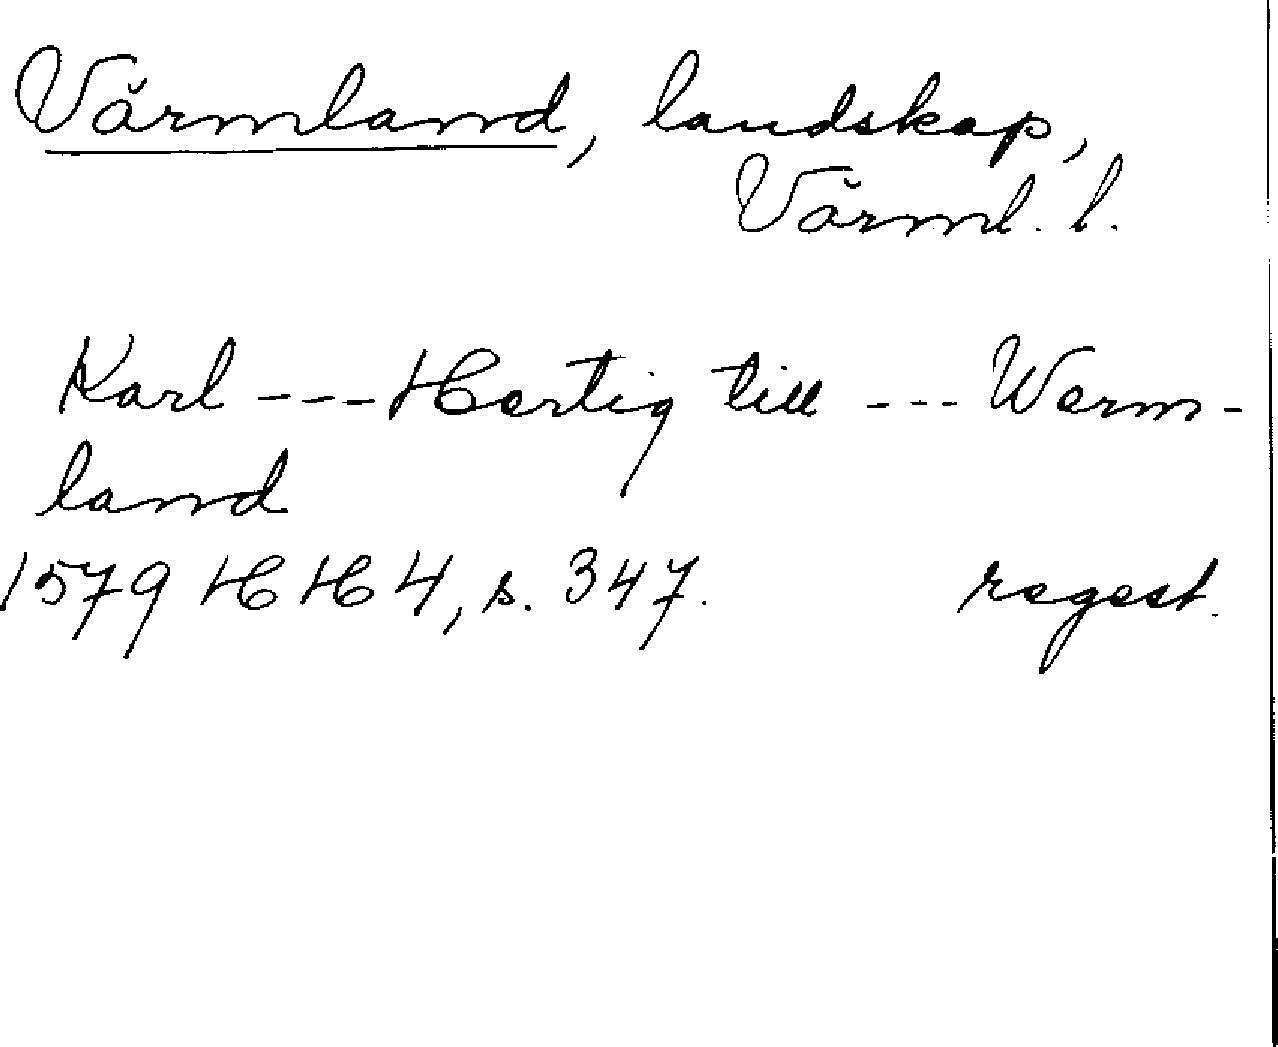 Värmland, landskap,
Värml. l.
Karl --- Hertig till --- Werm-
land
1579 HH 4, s. 347. regest.